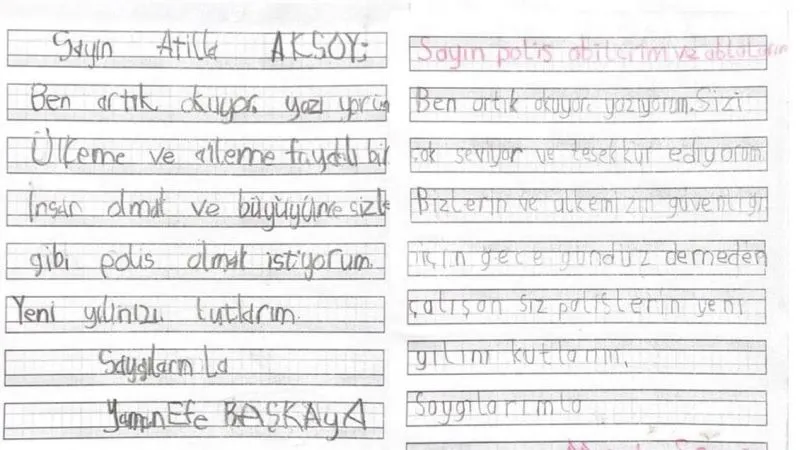 Sayın Atilla AKSOY;
Ben artık okuyor, yazı yoru
Ülkeme ve aileme faydalı bir
İnsan olmak ve büyüyünce sizle
gibi polis olmak istiyorum.
Yeni yılınızı kutlarım.
Saygılarımla
Efe BAŞKAyA
Sayın polis abilerim ve ablalarım
Ben artık okuyor, yazıyorum. Sizi
çok seviyor ve teşekkür ediyorum.
Bizlerin ve ülkemizin güvenliği
için gece gündüz demeden
çalışan siz polislerin yeni
yılını kutlarım.
Saygılarımla